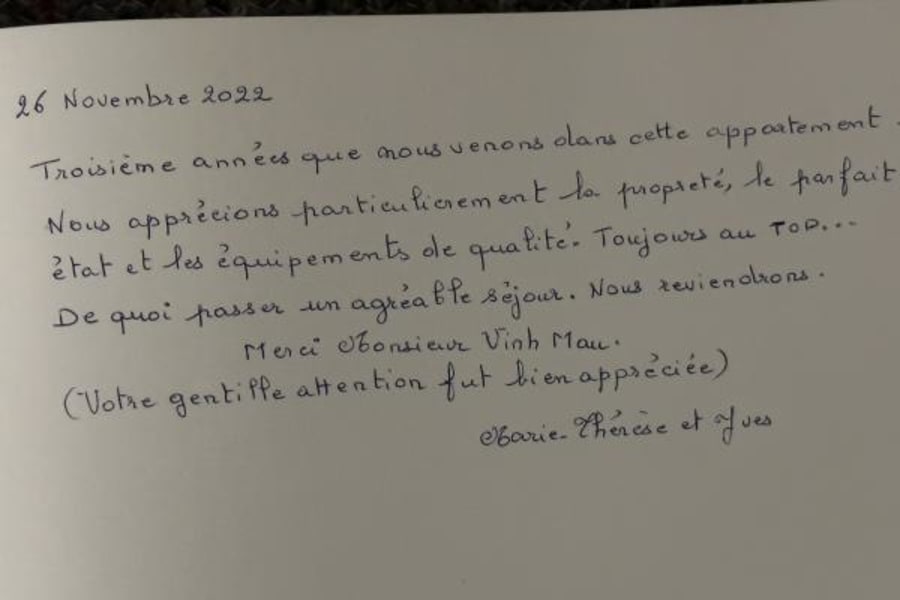 26 Novembre 2022
Troisième années que nous venons dans cette appartement.
Nous apprécions particulièrement la propreté, le parfait
état et les équipements de qualité. Toujours au TOP...
De quoi passer un agréable séjour. Nous reviendrons.
Merci Monsieur Vinh Mau.
(Votre gentille attention fut bien appréciée)
Marie-Thérèse et Yves